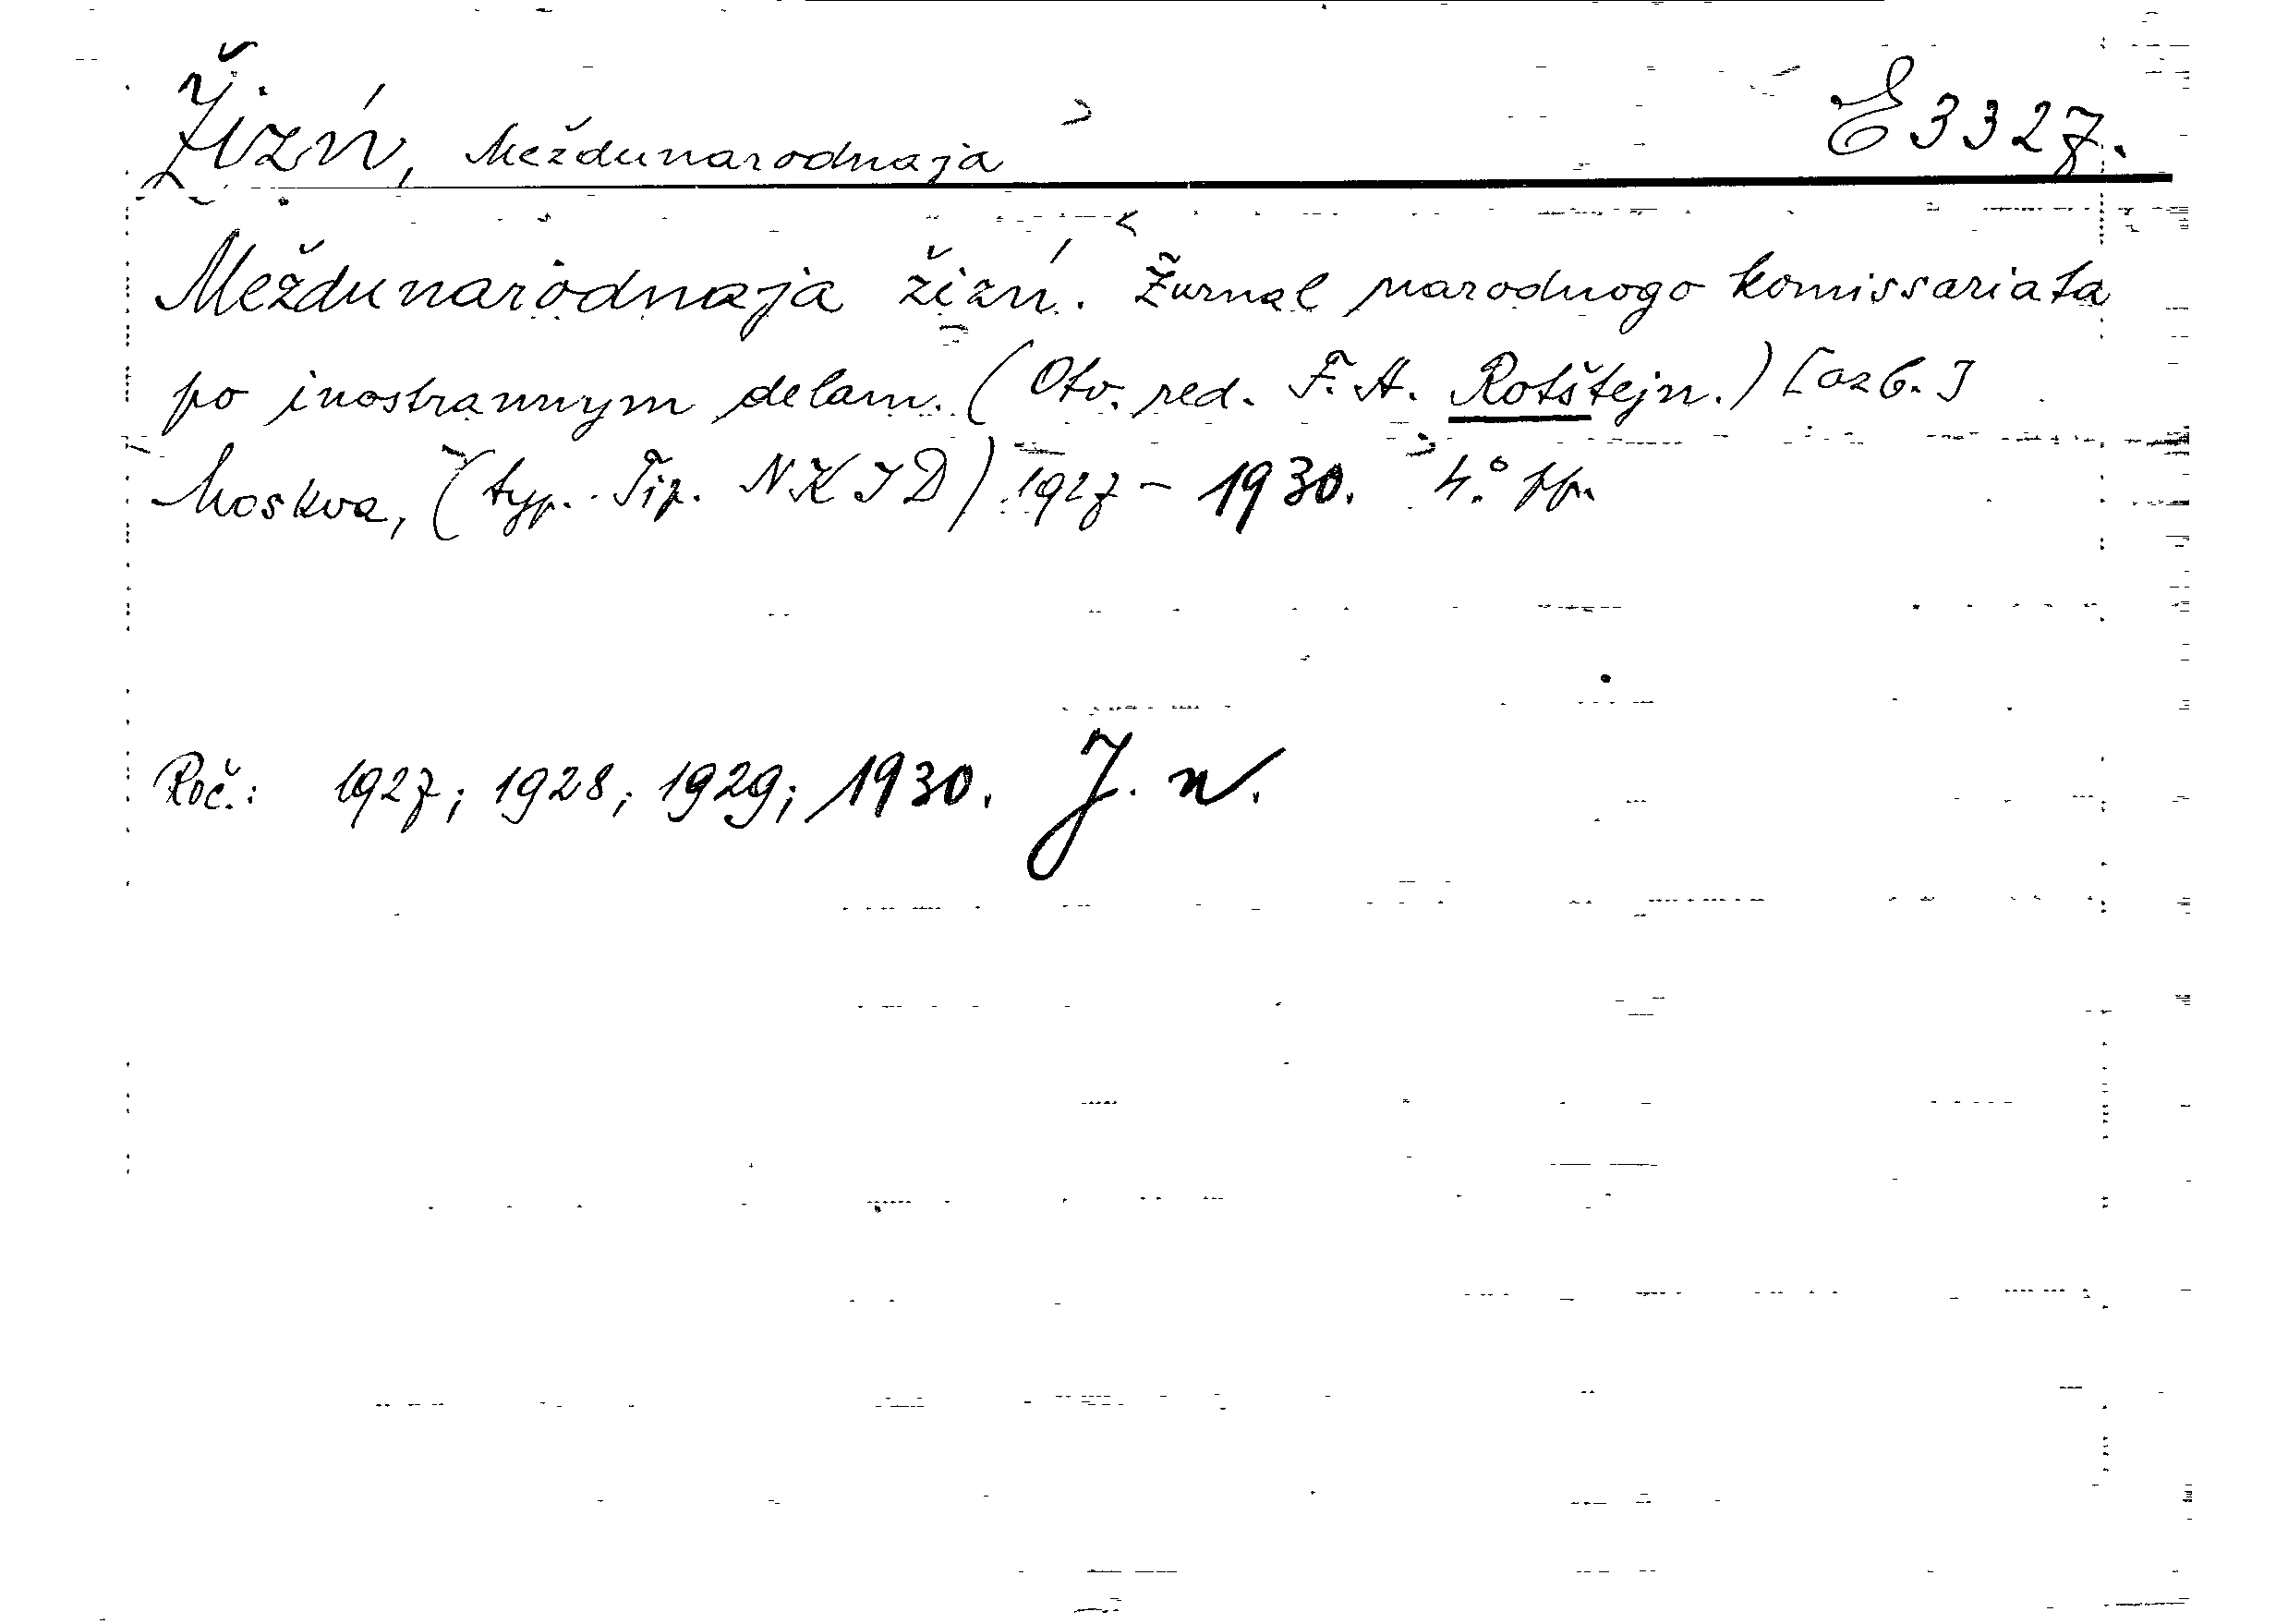 Žizń, Meždunarodnaja E 3327.
Meždunarodnaja žizń. Žurnal narodnogo komissariata
po inostrannym delam. (Otv. red. F. A. Rotštejn.) [azb.]
Moskva, (typ. Tip. NKID) 1927 - 1930. 4.° pp.
Roč.: 1927; 1928; 1929; 1930. J. n.